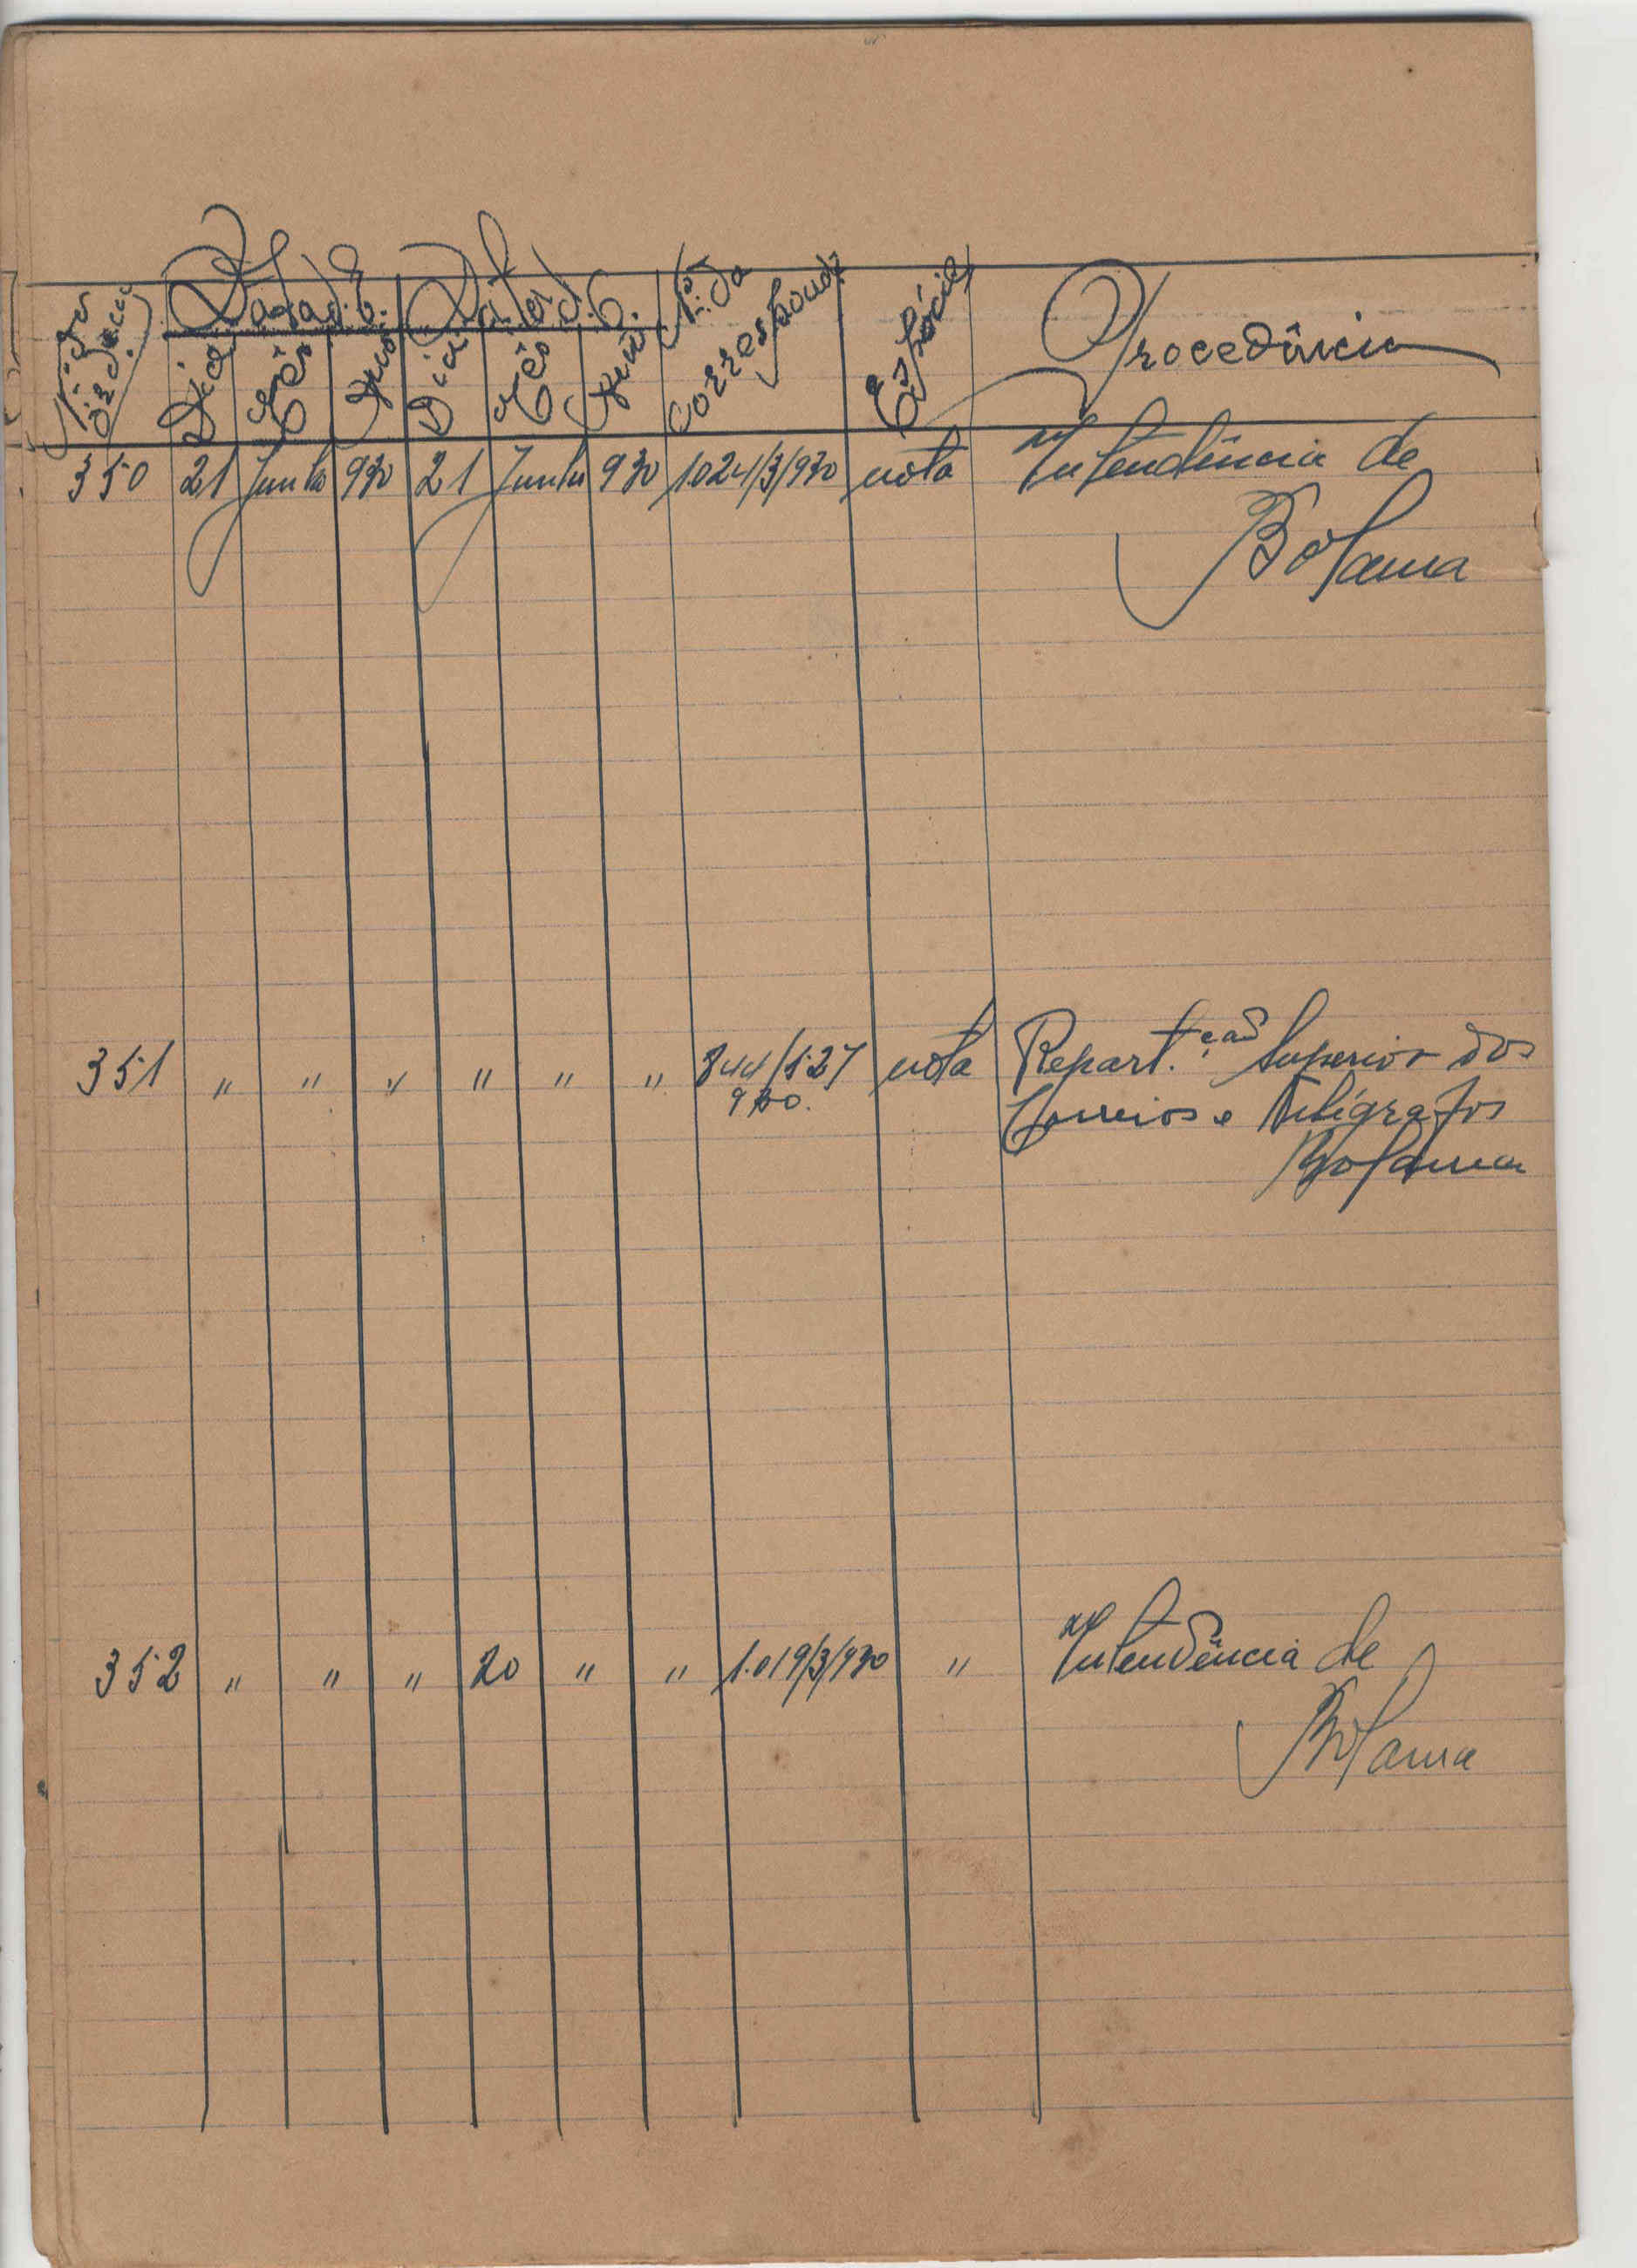 Nº de ordem Data d. E. Data d. C. Nº da correspond. Espécie Procedência
Dia Mês Ano Dia Mês Ano
350 21 Junho 930 21 Junho 930 1024/3/930 nota Intendência de
Bolama
351 " " " " " " 844/527 nota Repart.ção Superior dos
930. Correios e Telégrafos
Bolama
352 " " " 20 " " 1.019/3/930 " Intendência de
Bolama